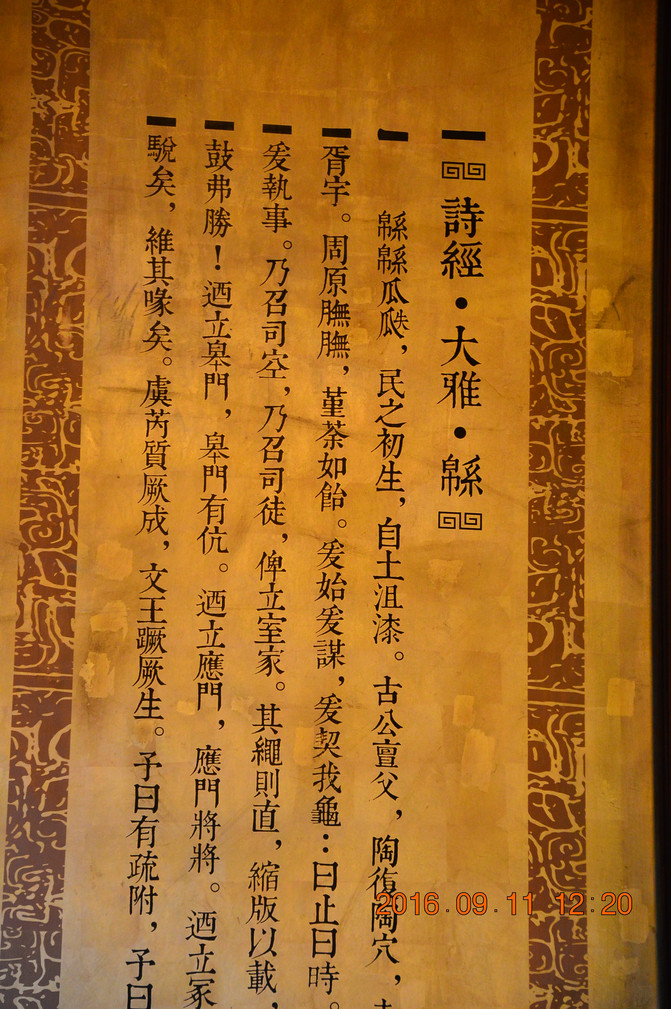 詩經・大雅・緜
緜緜瓜瓞，民之初生，自土沮漆。古公亶父，陶復陶穴，
胥宇。周原膴膴，堇荼如飴。爰始爰謀，爰契我龜：曰止曰時。
爰執事。乃召司空，乃召司徒，俾立室家。其繩則直，縮版以載，
鼓弗勝！迺立皋門，皋門有伉。迺立應門，應門將將。迺立冢
駾矣，維其喙矣。虞芮質厥成，文王蹶厥生。予曰有疏附，予曰
2016.09.11 12:20